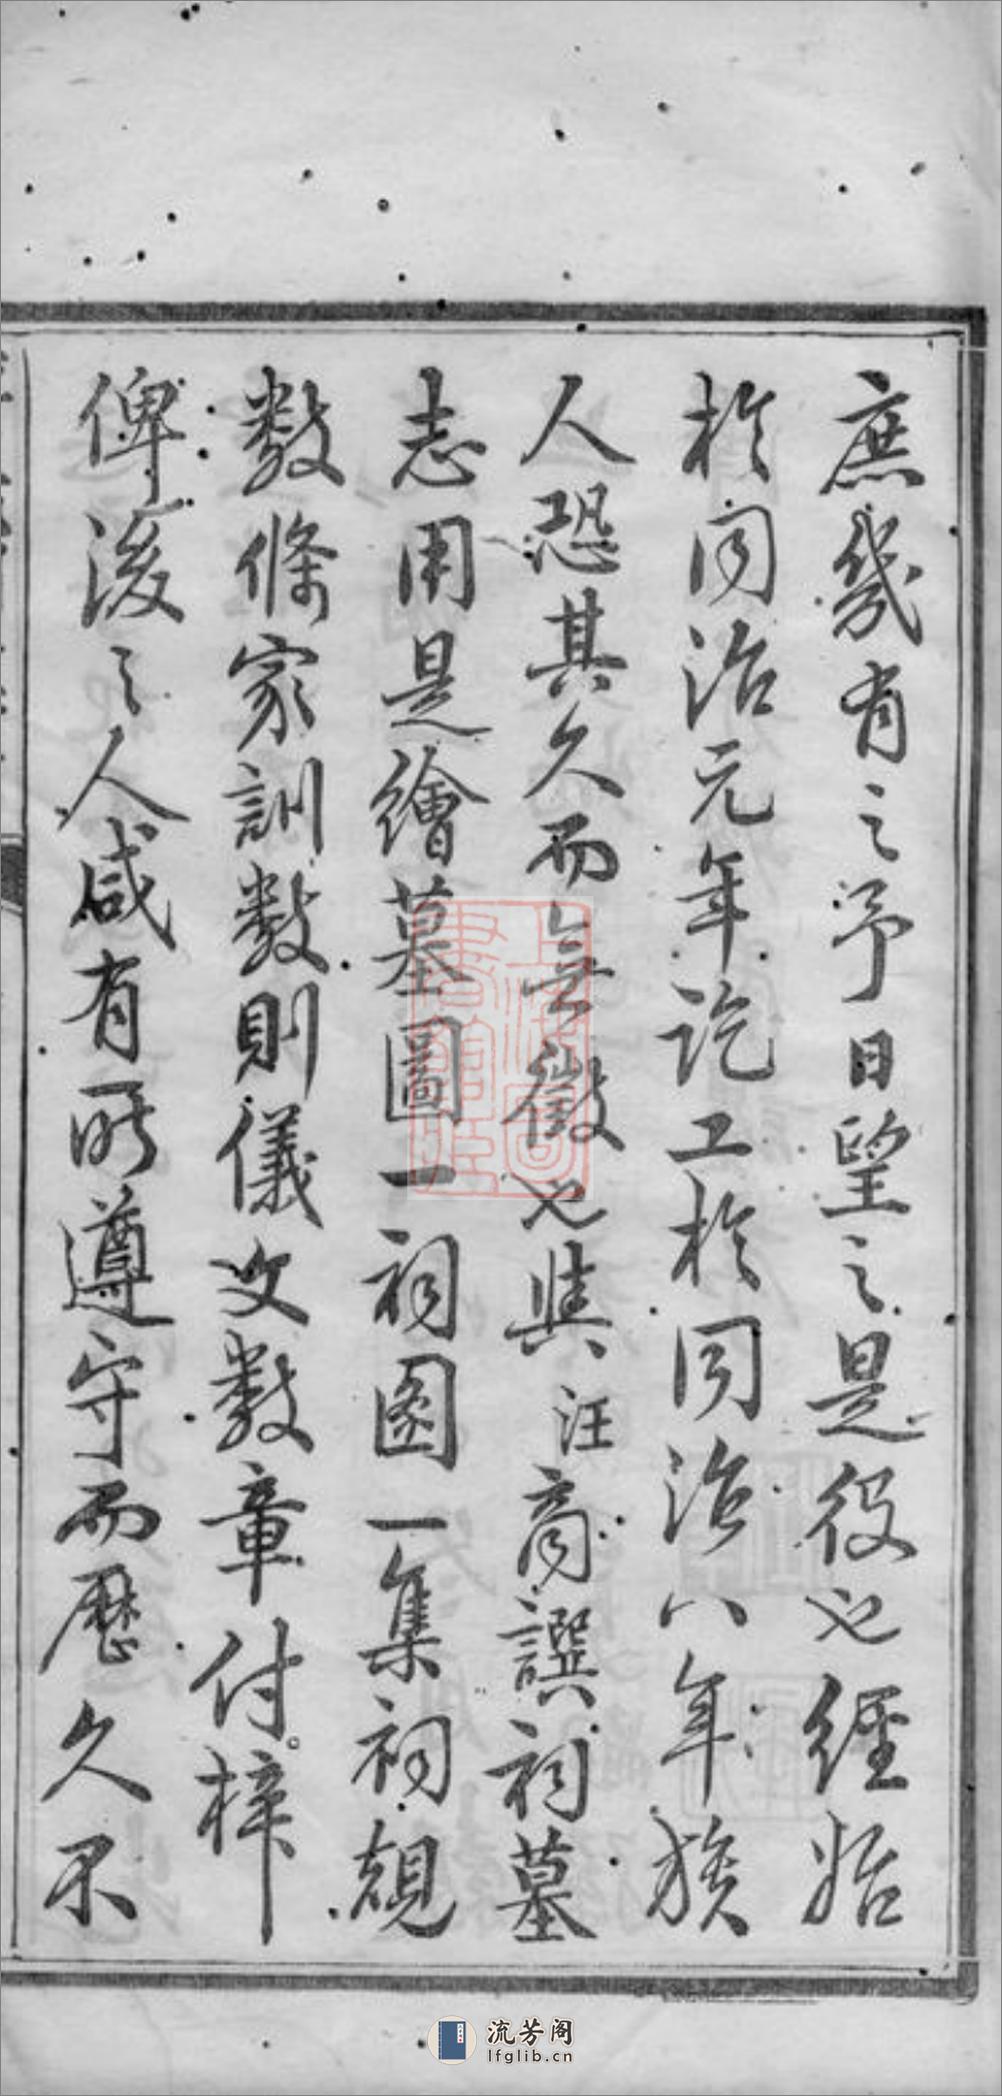 庶幾有之予日望之是役也經始
於同治元年訖工於同治八年族
人恐其久而無徵也與汪商譔祠墓
志用是繪墓圖一祠圖一集祠規
數條家訓數則儀文數章付梓
俾後之人咸有所遵守而歷久不
上海圖書館藏
流芳阁
lfglib.cn